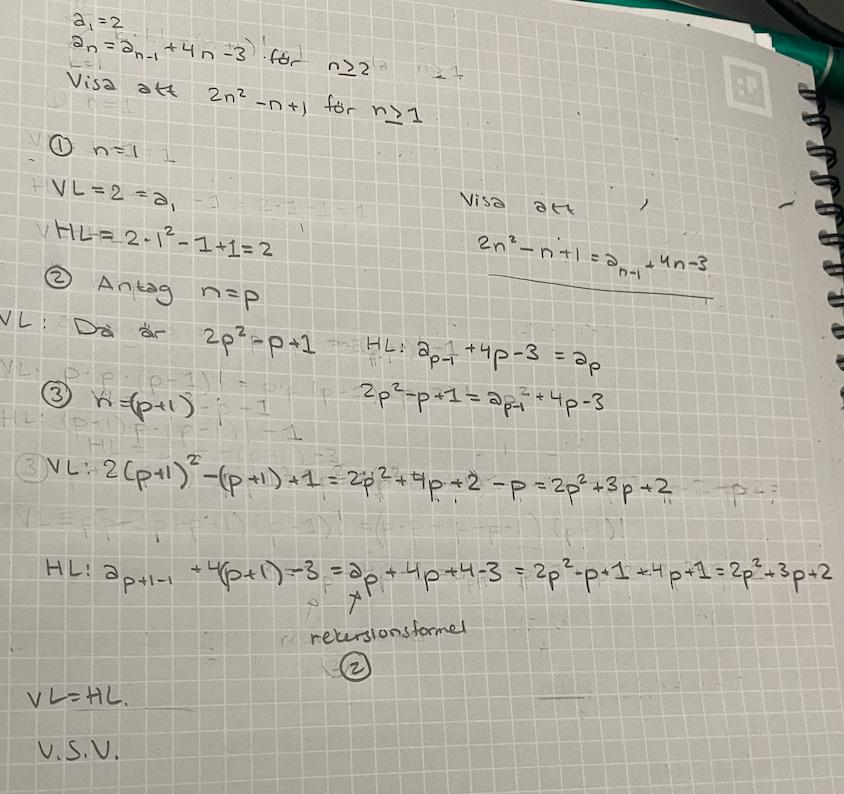 a₁=2
aₙ=aₙ₋₁+4n-3 för n≥2
Visa att 2n²-n+1 för n≥1
① n=1
VL=2=a₁
HL=2·1²-1+1=2
Visa att
2n²-n+1=aₙ₋₁+4n-3
② Antag n=p
VL: Då är 2p²-p+1 HL: aₚ₋₁+4p-3=aₚ
2p²-p+1=aₚ₋₁+4p-3
③ n=(p+1)
VL: 2(p+1)²-(p+1)+1=2p²+4p+2-p=2p²+3p+2
HL: aₚ₊₁₋₁+4(p+1)-3=aₚ+4p+4-3=2p²-p+1+4p+1=2p²+3p+2
rekursionsformel
②
VL=HL.
V.S.V.